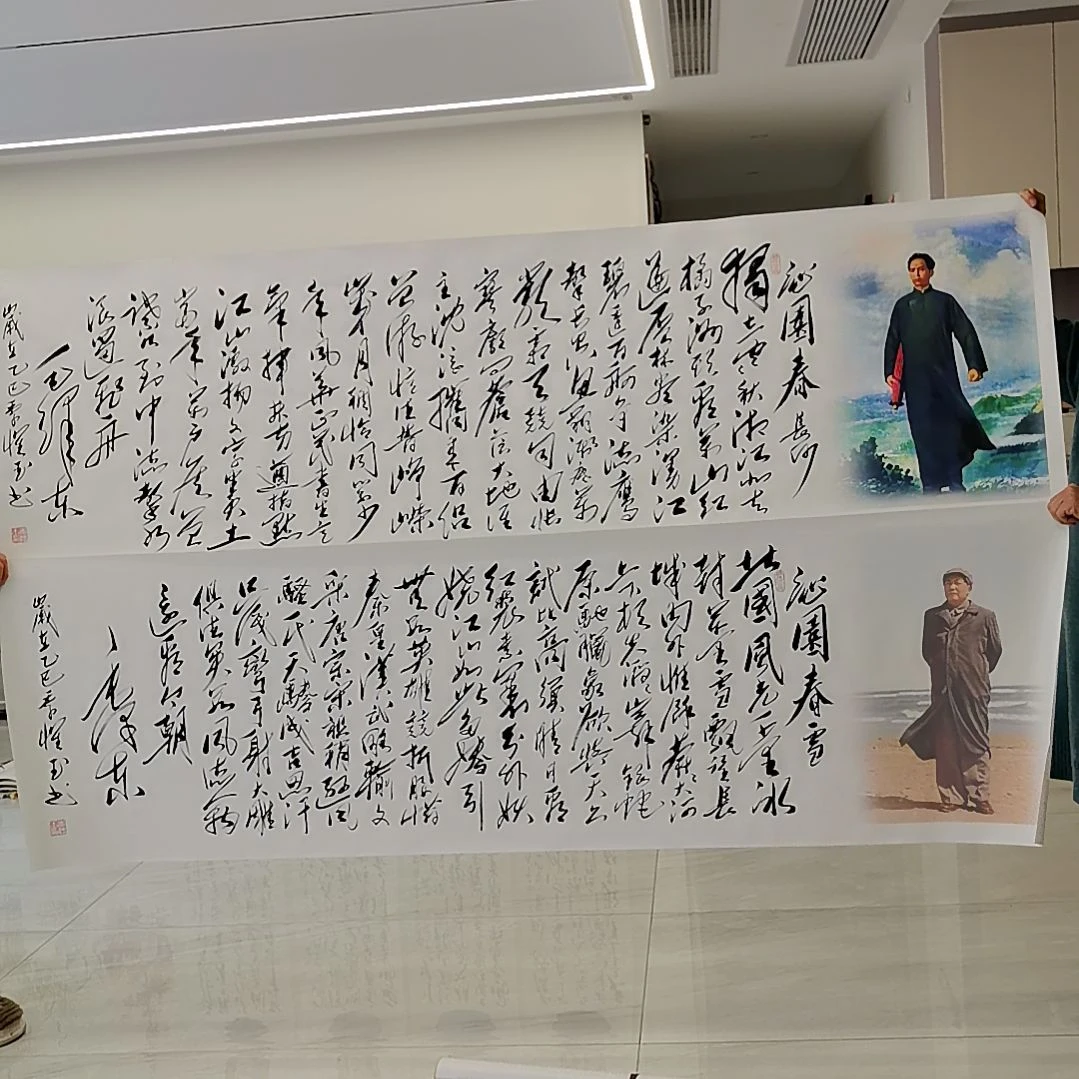 沁園春 長沙
獨立寒秋湘江北去
橘子洲頭看萬山紅
遍層林盡染漫江
碧透百舸爭流鷹
擊長空魚翔淺底萬
類霜天競自由悵
寥廓問蒼茫大地誰
主沉浮攜來百侶
曾游憶往昔崢嶸
歲月稠恰同學少
年風華正茂書生意
氣揮斥方遒指點
江山激揚文字糞土
當年萬戶侯曾
記否到中流擊水
浪遏飛舟
毛澤東
歲在乙巳春愷玉書
沁園春 雪
北國風光千里冰
封萬里雪飄望長
城內外惟餘莽莽大河
上下頓失滔滔山舞銀蛇
原馳臘象欲與天公
試比高須晴日看
紅裝素裹分外妖
嬈江山如此多嬌引
無數英雄競折腰惜
秦皇漢武略輸文
采唐宗宋祖稍遜風
騷一代天驕成吉思汗
只識彎弓射大雕
俱往矣數風流人物
還看今朝
毛澤東
歲在乙巳春愷玉書